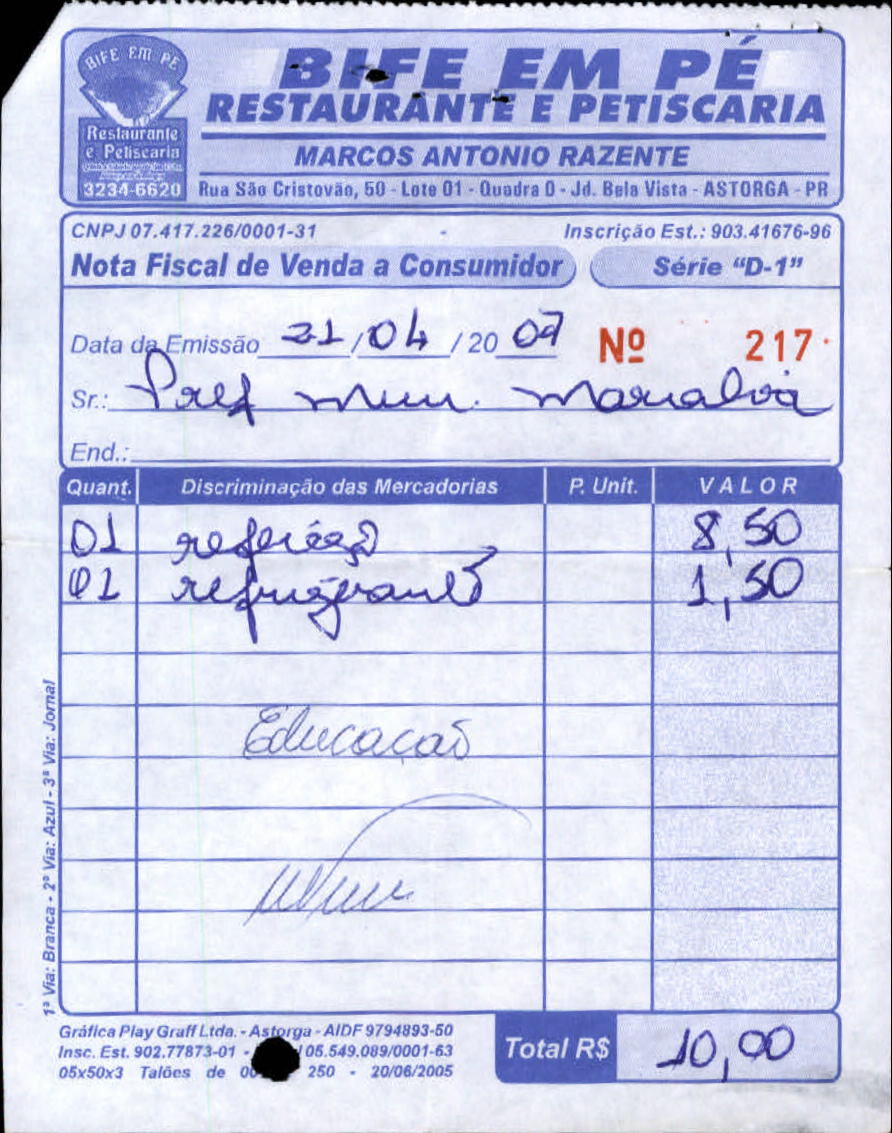 BIFE EM PÉ
Restaurante
e Petiscaria
3234-6620
BIFE EM PÉ
RESTAURANTE E PETISCARIA
MARCOS ANTONIO RAZENTE
Rua São Cristovão, 50 - Lote 01 - Quadra 0 - Jd. Bela Vista - ASTORGA - PR
CNPJ 07.417.226/0001-31 Inscrição Est.: 903.41676-96
Nota Fiscal de Venda a Consumidor Série "D-1"
Data da Emissão 21/04/2007 Nº 217
Sr.: Pref mun. Marialva
End.:
Quant. Discriminação das Mercadorias P. Unit. VALOR
01 refeição 8,50
01 refrigerante 1,50
Educação
1ª Via: Branca - 2ª Via: Azul - 3ª Via: Jornal
Gráfica Play Graff Ltda. - Astorga - AIDF 9794893-50
Insc. Est. 902.77873-01 - 05.549.089/0001-63
05x50x3 Talões de 250 - 20/06/2005
Total R$ 10,00